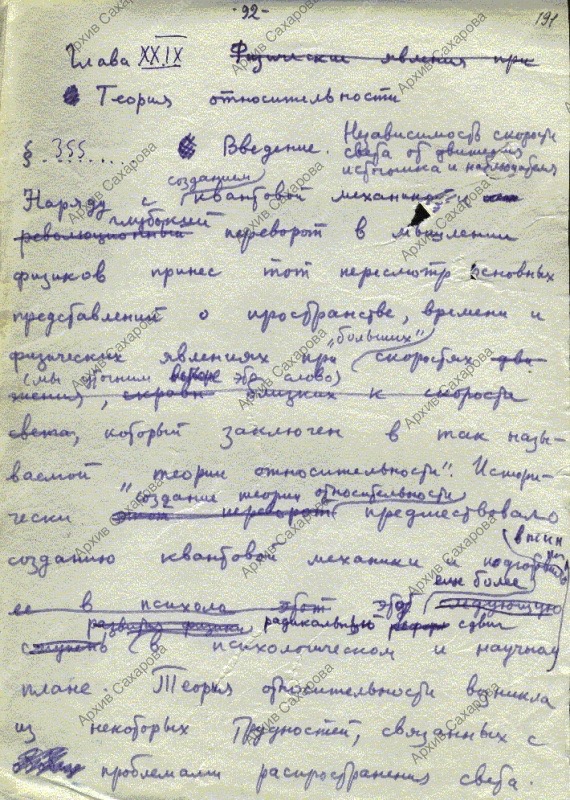 -92-
191
Глава XXIX Физические явления при
Теория относительности
§ 355 Введение. Независимость скорости
света от движения
источника и наблюдателя
созданием
Наряду с квантовой механики
глубокий
революционный переворот в мышлении
физиков принес тот пересмотр основных
представлений о пространстве, времени и
физических явлениях при „больших" скоростях дви-
(мы уточним это слово)
жения, близких к скорости
света, который заключен в так назы-
ваемой „теории относительности". Истори-
создание теории относительности
чески этот переворот предшествовало
созданию квантовой механики и подготовило
еще более
ее в психоло этот этот следующую
развития физики радикальный сдвиг
ступень в психологическом и научном
плане. Теория относительности возникла
из некоторых трудностей, связанных с
проблемами распространения света.
Архив Сахарова